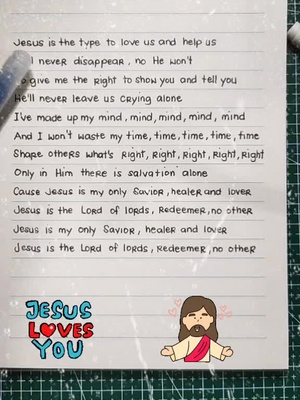 Jesus is the type to love us and help us
never disappear, no He won't
give me the Right to show you and tell you
He'll never leave us crying alone
I've made up my mind, mind, mind, mind, mind
And I won't waste my time, time, time, time, time
Share others what's Right, Right, Right, Right, Right
Only in Him there is salvation alone
Cause Jesus is my only Savior, healer and lover
Jesus is the Lord of lords, Redeemer, no other
Jesus is my only Savior, healer and lover
Jesus is the Lord of lords, Redeemer, no other
JESUS
LOVES
YOU